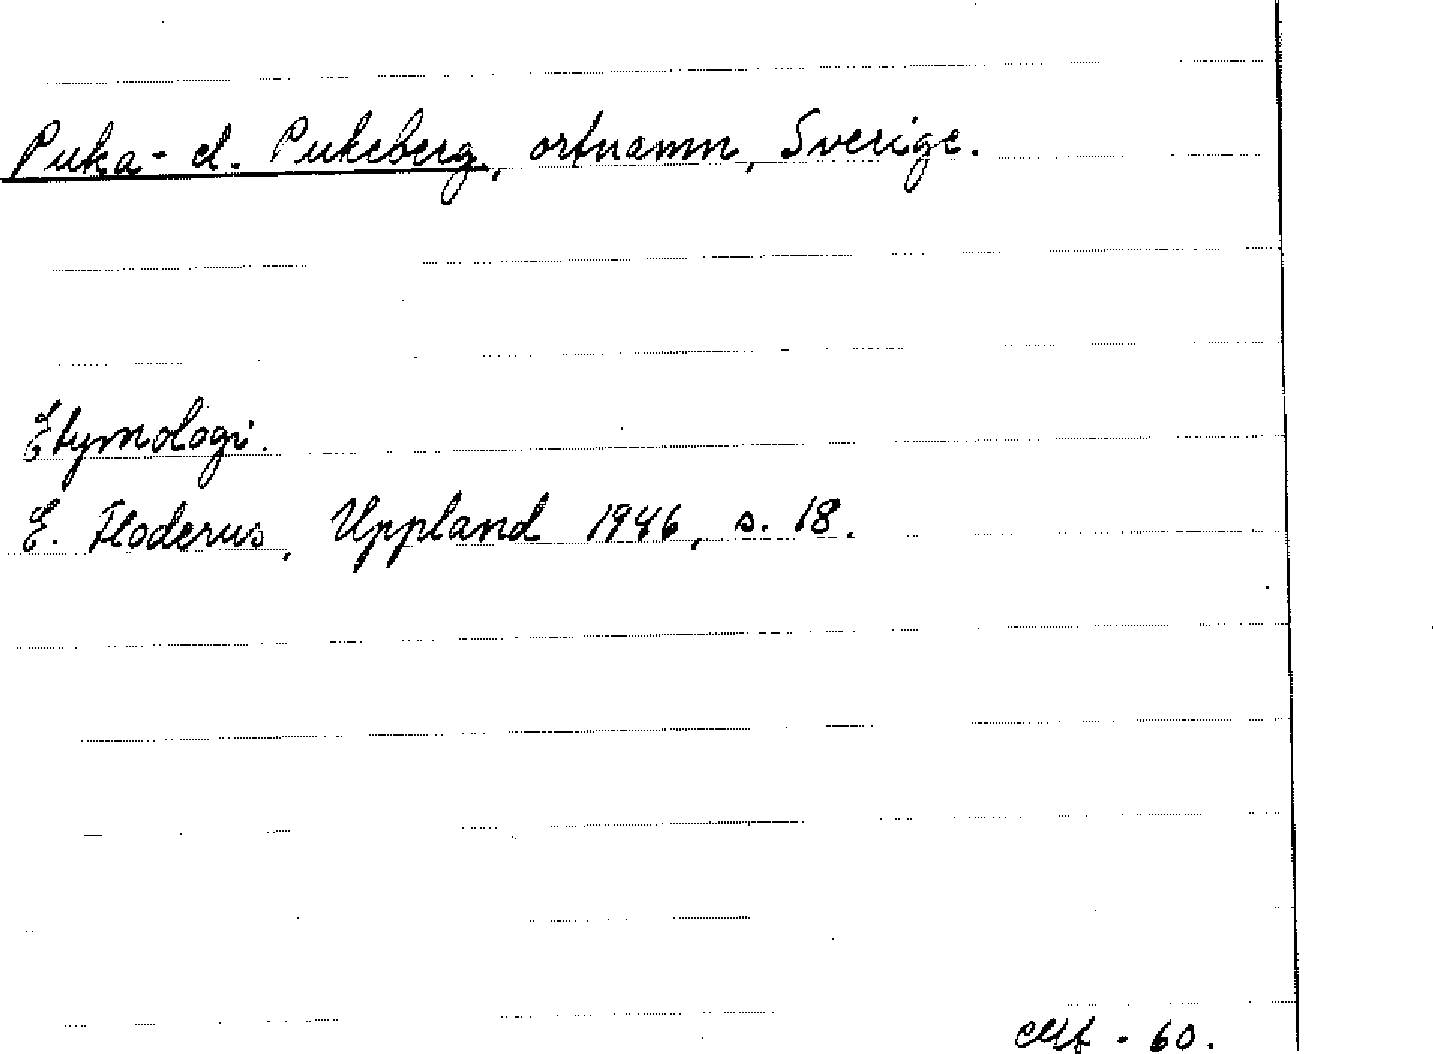 Puka- el. Pukeberg, ortnamn, Sverige.
Etymologi.
E. Floderus, Uppland 1946, s. 18.
- 60.